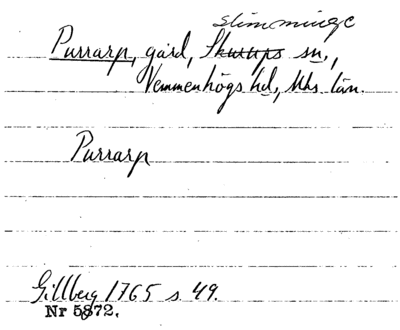 Slimminge
Purrarp, gård, Skurups sn,
Vemmenhögs hd, Mhs län.
Purrarp
Gillberg 1765 s. 49.
Nr 5872.